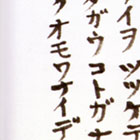 イヲツヅケ
タガウコトガナ
クオモワナイデ